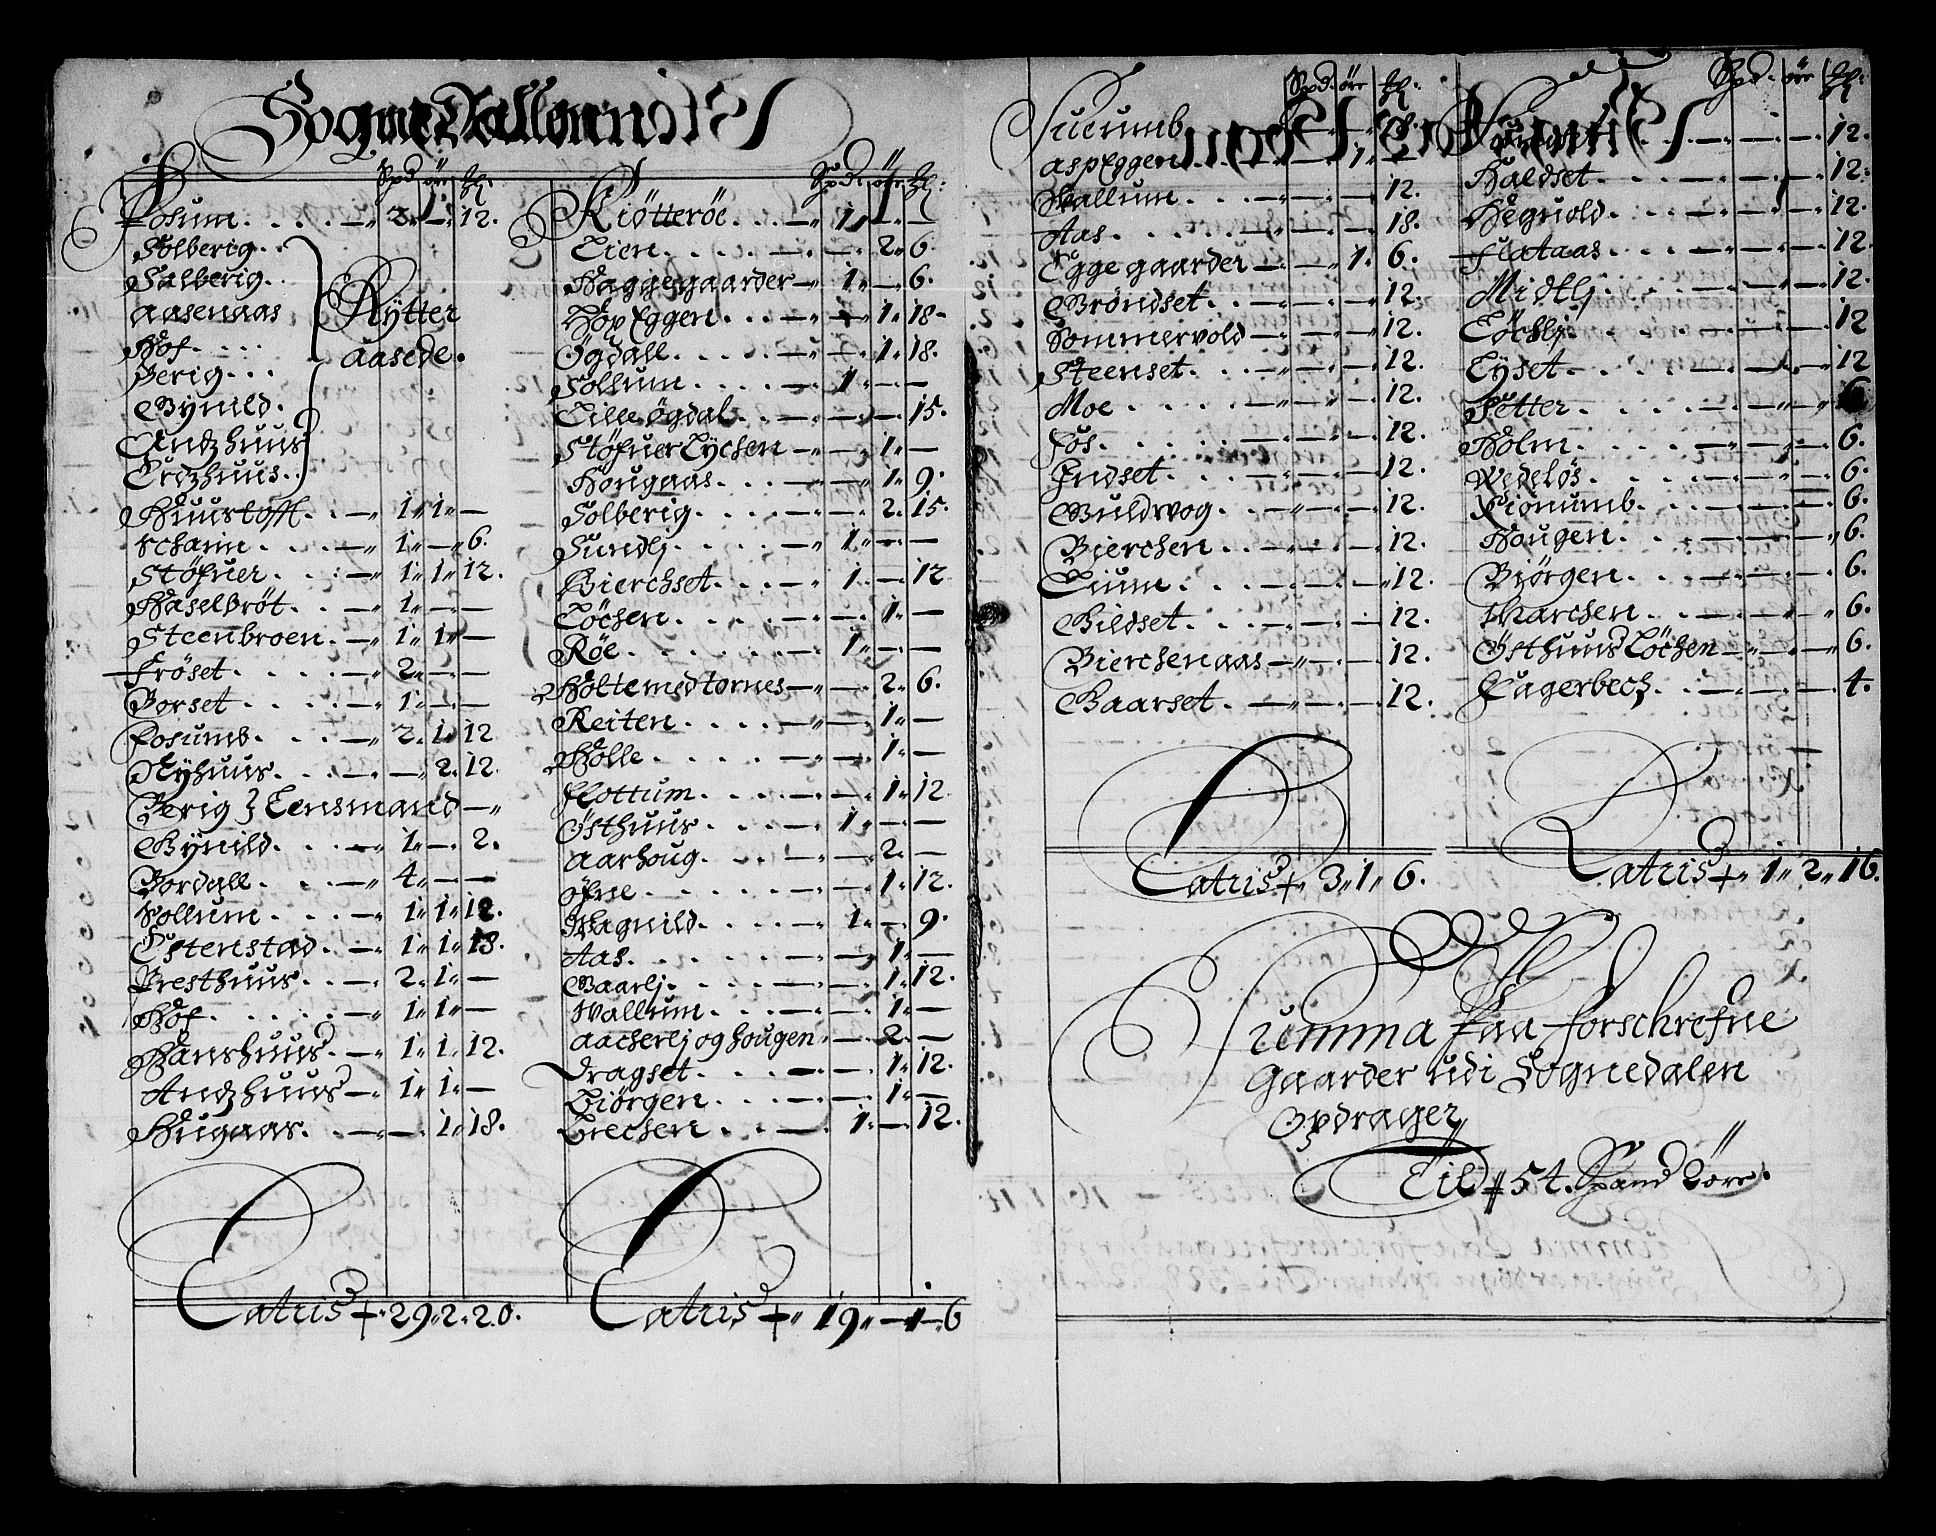 Sogne Dallen
Spd. öre ßl:
Fosum. . . . . —„ 2„ —„ 12.
Solberig. .
Salberig. .
Aasenaas
Hof. . . .
Berig. . .
Gynild.
Andzhuus
Erdzhuus. .
Rytter
aasede.
Huustofft. . —„ 1„ 1„ —
Scharin. . . . —„ 1„ —„ 6.
Stöfuer. . . . —„ 1„ 1„ 12.
Haselbröt. . . —„ 1„ —„ —
Steenbroen. . —„ 1„ 1„ —
Fröset. . . . . —„ 2„ —„ —
Borset. . . . . —„ 1„ —„ —
Fosumb. . . . —„ 2„ 1„ 12
Nyhuus. . . . —„ —„ 2. 12.
Berig } Lensmand —„
Gynild. . . . . —„ 1„ —. 2.
Bordall. . . . —„ 4„ —„ —
Sollum. . . . —„ 1„ 1„ 12.
Estenstad. . —„ 1„ 1„ 18.
Presthuus. . —„ 2„ 1„ —
Hof. . . . . . —„ 1„ 1„ —
Hanshuus. . —„ 1„ 1„ 12.
Andzhuus —„ 1„ 1„ —
Hugaas. . . —„ —„ 1„ 18.
Latris + „ 29„ 2„ 20.
Spd. öre ßl:
Kiötteröe. . . —„ 1„ —„ —
Lien. . . . . —„ —„ 2„ 6.
Haggesgaarder —„ 1„ —„ 6.
Hop Eggen. . . —„ —„ 1„ 18.
Ögdall. . . . . —„ —„ 1„ 18.
Sollum. . . . . —„ 1„ —„ —
Lille Ögdal. . . —„ —„ —„ 15.
Stöfuer Lÿchen —„ —„ 1„ —
Hougaas. . . . —„ —„ 1„ 9.
Solberig. . . . —„ —„ 2„ 15.
Sundlj. . . . . —„ 1„ —„ —
Bierchset. . . . —„ 1„ —„ 12
Löchen. . . . . —„ —„ 1„ —
Röe. . . . . . —„ 1„ —„ —
Holtemedtornes —„ —„ 2„ 6.
Reiten. . . . . —„ —„ 1„ —
Holle. . . . . —„ —„ 1„ —
Flottum. . . . —„ —„ 1„ 12.
Östhuus. . . . —„ 1„ —„ —
Aarhoug. . . . —„ —„ 2„ —
Öfne. . . . . . —„ —„ 1„ 12.
Wagnild. . . . —„ 1„ —„ 9.
Aas. . . . . . —„ —„ 1„ —
Baarlj. . . . . —„ —„ 1„ 12.
Wallum. . . . —„ —„ 1„ —
Aacherlj og Hougen —„ —„ 2„ —
Dragset. . . . —„ —„ 1„ 12.
Biörgen. . . . —„ —„ 1„ —
Lrechen. . . . —„ 1„ —„ 12.
Latris + „ 19„ —1„ 6
Spd. öre ßl:
Sucumb —„ —„ 18.
aspEggen. . . —„ —„ 1„ —
Wallum. . . —„ —„ —„ 12.
Aas. . . . . . —„ —„ —„ 18.
Egge gaarder —„ —„ 1„ 6.
Bröndset. . —„ —„ —„ 12.
Sommervold —„ —„ —„ 12.
Steenset. . . —„ —„ —„ 12.
Moe. . . . . —„ —„ —„ 12.
Fos. . . . . . —„ —„ —„ 12.
Indset. . . . —„ —„ —„ 12.
Buldvog. . . —„ —„ —„ 12.
Bierchen. . . —„ —„ —„ 12.
Lium. . . . —„ —„ —„ 12.
Gildset. . . —„ —„ —„ 12.
Bierchenaas —„ —„ —„ 12.
Baarset. . . —„ —„ —„ 12.
Latris + „ 3„ 1„ 6.
Spd. öre ßl:
—„ —„ —„ 12.
Haldset. . . —„ —„ —„ 12.
Hegvold. . . —„ —„ —„ 12.
Flataas. . . —„ —„ —„ 12.
Midtlj. . . . —„ —„ —„ 12.
Löchlj. . . . —„ —„ —„ 12
Lyset. . . . . —„ —„ —„ 12
Setter. . . . —„ —„ —„ 6
Holm. . . . . —„ —„ —„ 6.
Wedelös. . . —„ —„ —„ 6.
Fionumb. . . —„ —„ —„ 6.
Hougen. . . . —„ —„ —„ 6.
Biörgen. . . . —„ —„ —„ 6.
Marchen. . . —„ —„ —„ 6.
Östhuus Löchen —„ —„ —„ 6.
Fagerbech. . . —„ —„ —„ 4.
Latris + „ 1„ 2„ 16.
Summa Paa forschrefne
Gaarder udi Sognedalen
Opdrager
Til # 54. Spand 2 öre.